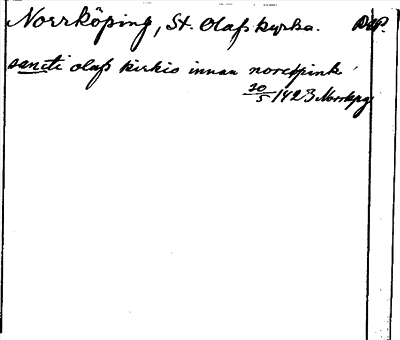 Norrköping, St. Olafs kyrka. DeP.
sancti olafs kirkio innan norchpink
30/5 1423 Norrkpg